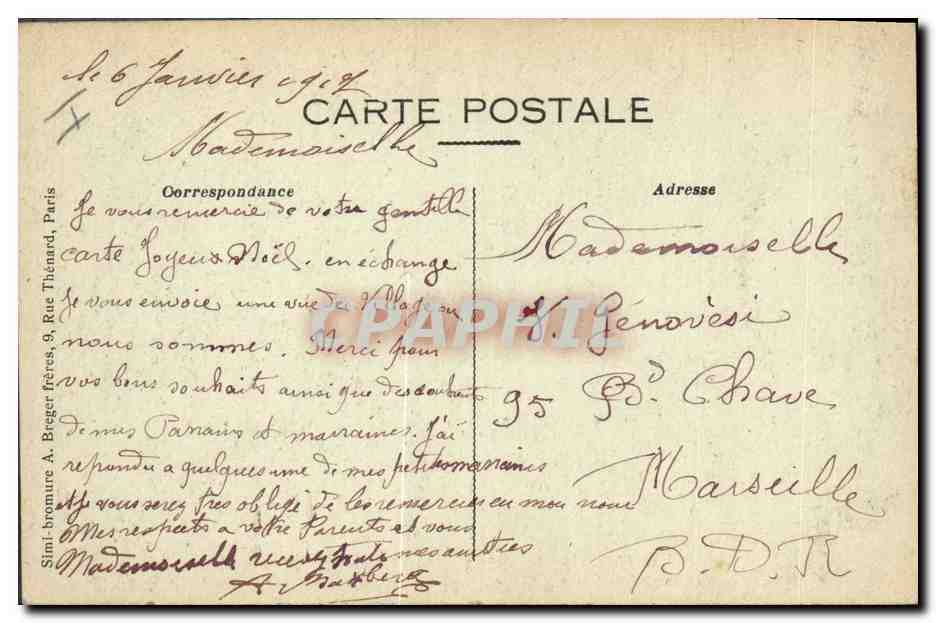 le 6 Janvier 1917
CARTE POSTALE
Mademoiselle
Correspondance
Je vous remercie de votre gentille
carte Joyeux Noël. en échange
Je vous envoie une vue du Village ou
nous sommes. Merci pour
vos bons souhaits ainsi que des
de mes Parrains et marraines. J'ai
repondu a quelques une de mes petites marraines
et Je vous serez tres obligé de les remercier en mon nom
Mes respects a votre Parents et vous
Mademoiselle recevez toute mes amities
A.
Adresse
Mademoiselle
V. Génovèsi
95 Bd. Chave
Marseille
B. D. R
Simi-bromure A. Breger frères, 9, Rue Thénard, Paris
CPAPHIL